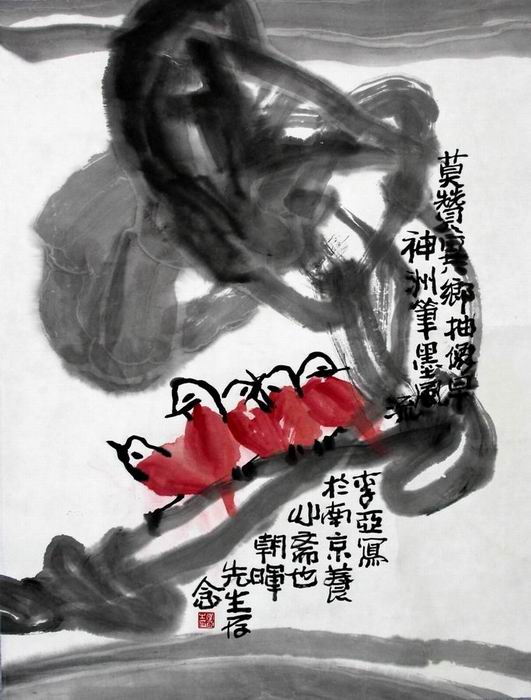 莫贊異鄉抽像早
神洲筆墨風
流
李亞寫
於南京養
心齋也
朝暉
先生存
念